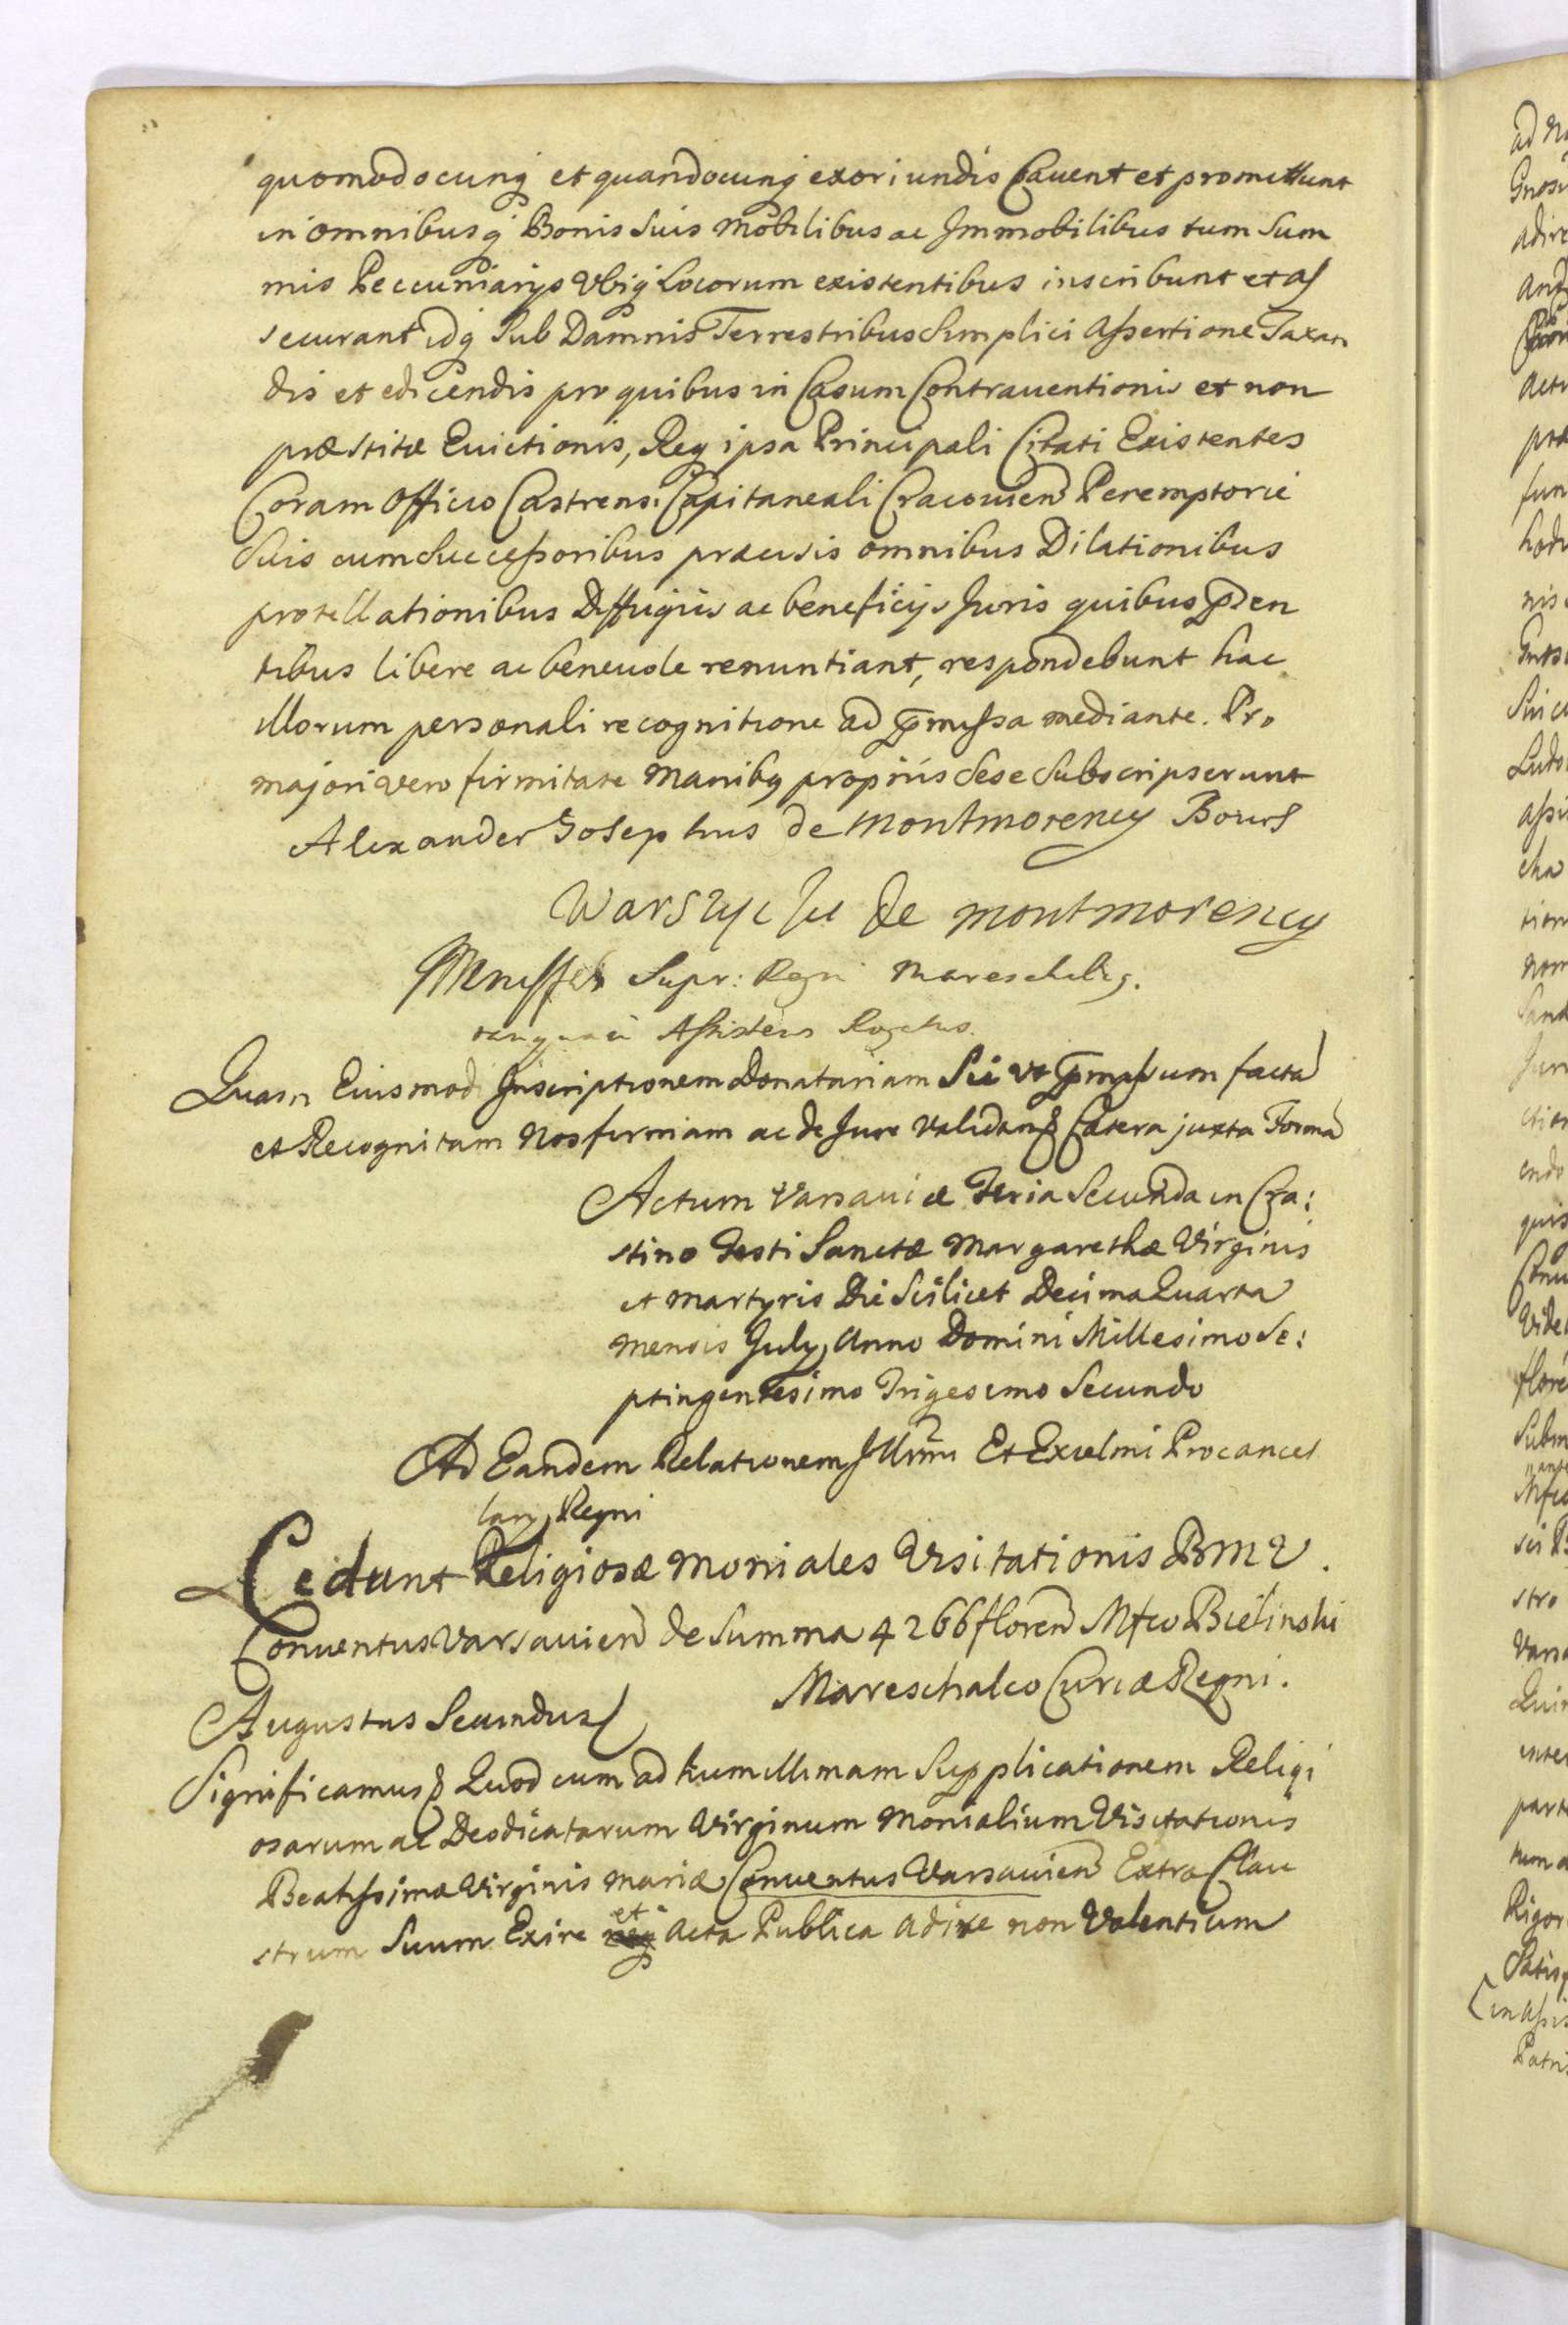 quomodocunq et quandocunq exoriundis Cavent et promittunt
in omnibusq Bonis Suis Mobilibus ac Immobilibus tum Sum
mis Peccuniarijs Vbiq Locorum existentibus inscribunt et as
securant idq Sub Damnis Terrestribus Simplici Assertione Taxan
dis et edicendis pro quibus in Casum Contrauentionis et non
præstitæ Euictionis, Req ipsa Principali Citati Existentes
Coram Officio Castrensi Capitaneali Cracouien Peremptorie
Suis cum Successoribus præcisis omnibus Dilationibus
protellationibus Diffugiis ac beneficijs Juris quibus pden
tibus libere ac beneuole renuntiant, respondebunt hac
illorum personali recognitione ad pmissa mediante. Pro
majori vero firmitate Manibq propriis Sese Subscripserunt
Alexander Josephus de Montmorency Bours
Warszycki de montmorency
Mnissek Supr: Regni Mareschalcq.
tanquam Assistens Rogatus.
Quam Eiusmodi Inscriptionem Donatariam Sic vt pmissum facta
et Recognitam Nos firmam ac de Jure Validam & Cætera juxta Forma
Actum Varsauiæ Feria Secunda in Cra:
stino Festi Sanctæ Margarethæ Virginis
et Martyris Die Scilicet Decima Quarta
Mensis July Anno Domini Millesimo Se:
ptingentesimo Trigesimo Secundo
Ad Eandem Relationem Illmi Et Excelmi Procancel
larij Regni
Cedunt Religiosæ Moniales Visitationis BMV.
Conuentus Varsauien de Summa 4266 floren Mfco Bielinski
Mareschalco Curiæ Regni.
Augustus Secundus
Significamus & Quod cum ad humillimam Supplicationem Religi
osarum ac Deodicatarum Virginum Monialium Visitationis
Beatissimæ Virginis Mariæ Conuentus Varsauien Extra Clau
strum Suum Exire et Acta Publica Adire non Valentium